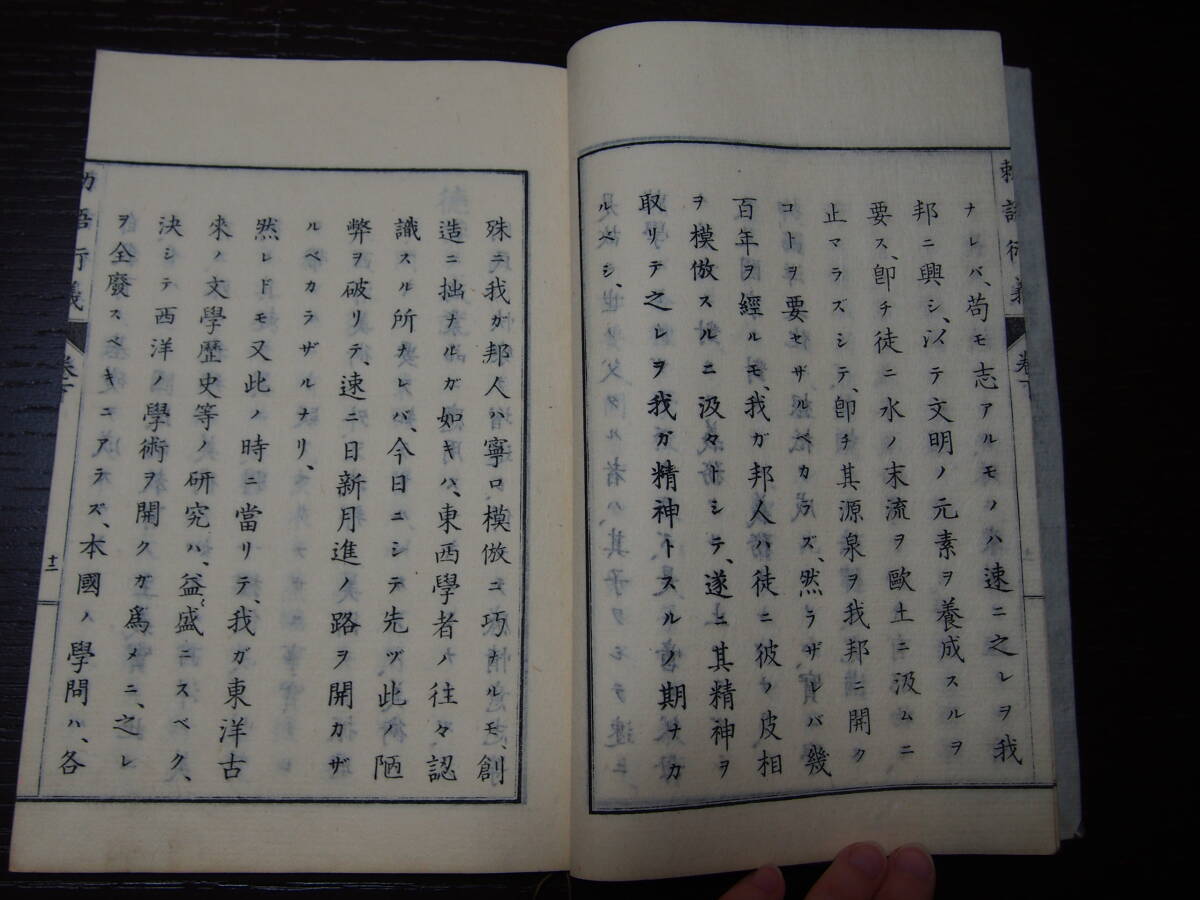 勅語衍義
卷下
ナレバ、苟モ志アルモノハ速ニ之レヲ我
邦ニ興シ、以テ文明ノ元素ヲ養成スルヲ
要ス、卽チ徒ニ水ノ末流ヲ歐土ニ汲ムニ
止マラズシテ、卽チ其源泉ヲ我邦ニ開ク
コトヲ要セザルベカラズ、然ラザレバ幾
百年ヲ經ルモ、我ガ邦人ハ徒ニ彼ノ皮相
ヲ模倣スルニ汲々トシテ、遂ニ其精神ヲ
取リテ之レヲ我ガ精神トスルノ期ナカ
ルベシ、
殊ニ我ガ邦人ハ寧ロ模倣ニ巧ナルモ、創
造ニ拙ナルガ如キハ、東西學者ノ往々認
識スル所ナレバ、今日ニシテ先ヅ此ノ陋
弊ヲ破リテ、速ニ日新月進ノ路ヲ開カザ
ルベカラザルナリ、
然レドモ又此ノ時ニ當リテ、我ガ東洋古
來ノ文學歷史等ノ研究ハ、益〻盛ニスベク、
決シテ西洋ノ學術ヲ開クガ爲メニ、之レ
ヲ全廢スベキニアラズ、本國ノ學問ハ、各
語衍義
卷下
十二